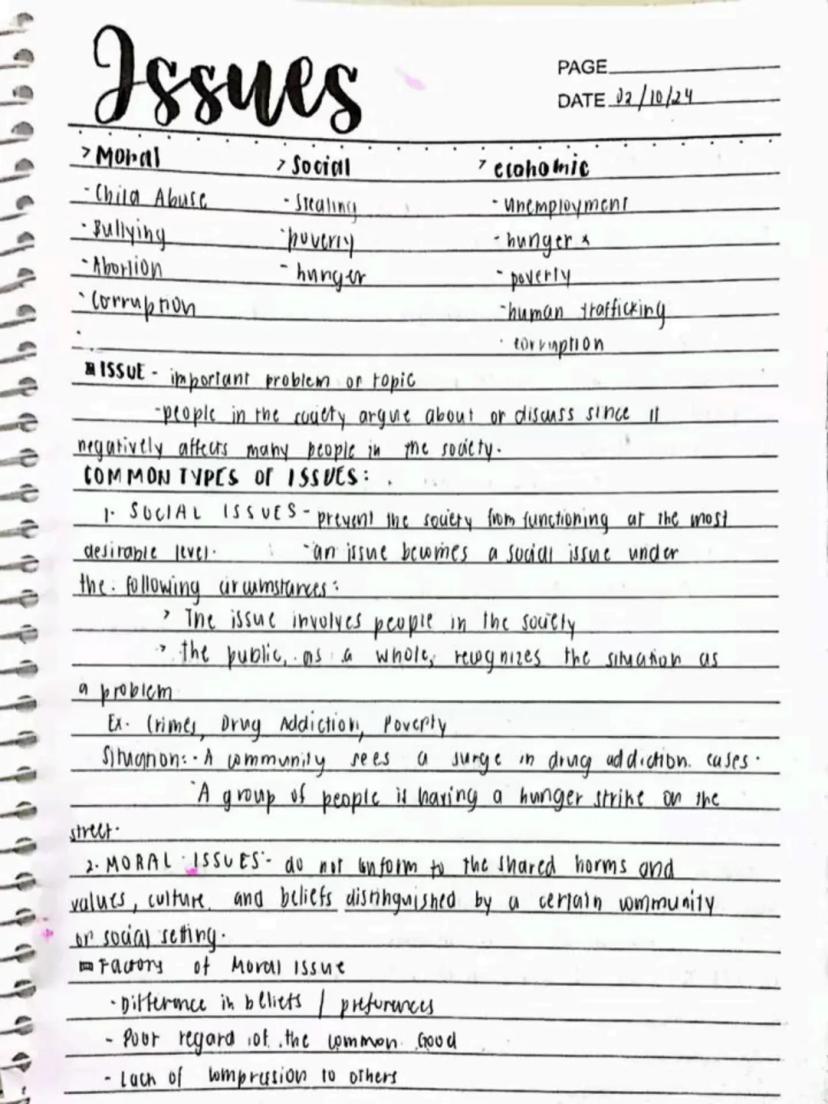 Issues
PAGE
DATE 02/10/24
> Moral > Social > economic
- Child Abuse - Stealing - unemployment
- Bullying - poverty - hunger x
- Abortion - hunger - poverty
- Corruption - human trafficking
- corruption
ISSUE - important problem or topic
- people in the society argue about or discuss since it
negatively affects many people in the society.
COMMON TYPES OF ISSUES:
1. SOCIAL ISSUES - prevent the society from functioning at the most
desirable level. - an issue becomes a social issue under
the following circumstances:
> The issue involves people in the society
> the public, as a whole, recognizes the situation as
a problem
Ex. Crimes, Drug Addiction, Poverty
Situation: - A community sees a surge in drug addiction cases.
- A group of people is having a hunger strike on the
street.
2. MORAL ISSUES - do not conform to the shared norms and
values, culture, and beliefs distinguished by a certain community
or social setting.
Factors of Moral Issue
- Difference in beliefs / preferences
- Poor regard of the common Good
- Lack of compression to others